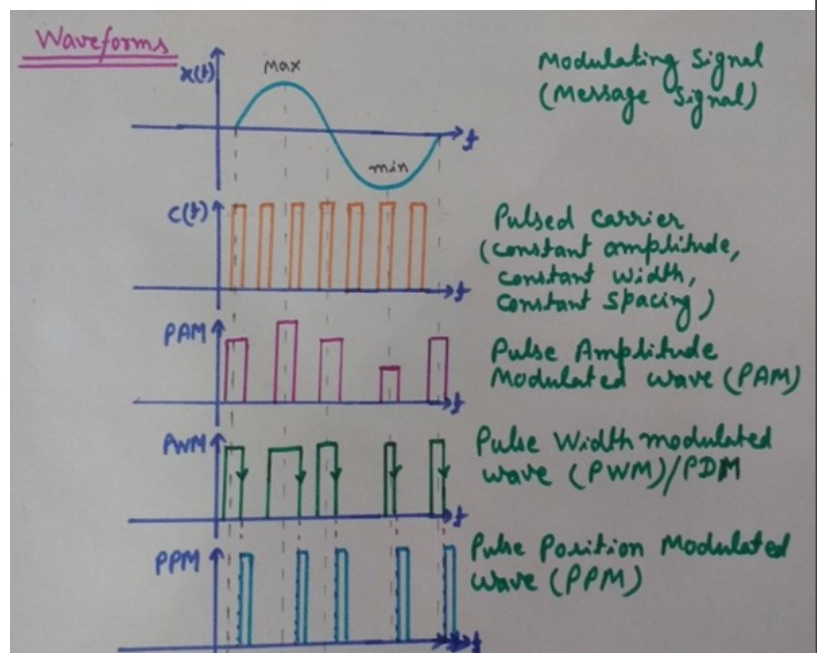 Waveforms
x(t)
max
min
t
Modulating Signal
(Message Signal)
C(t)
t
Pulsed carrier
(constant amplitude,
constant width,
constant spacing)
PAM
t
Pulse Amplitude
Modulated wave (PAM)
PWM
t
Pulse Width modulated
wave (PWM)/PDM
PPM
t
Pulse Position Modulated
wave (PPM)